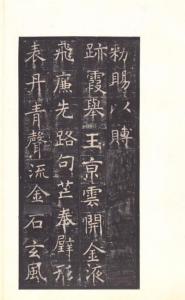 勑賜以賻
跡霞舉玉亰雲開金液
飛廉先路句芒奉璧形
表丹青聲流金石玄風